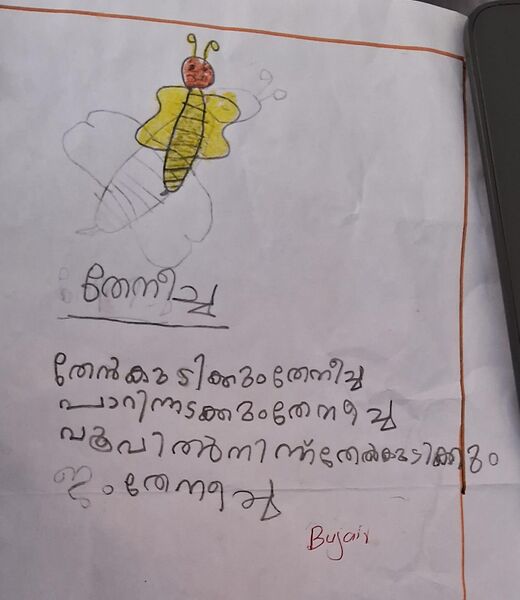 തേനീച്ച
തേൻകുടിക്കുംതേനീച്ച
പാറിനടക്കുംതേനീച്ച
പൂവിൽനിന്ന്തേൻകുടിക്കും
തേനീച്ച
Bujair